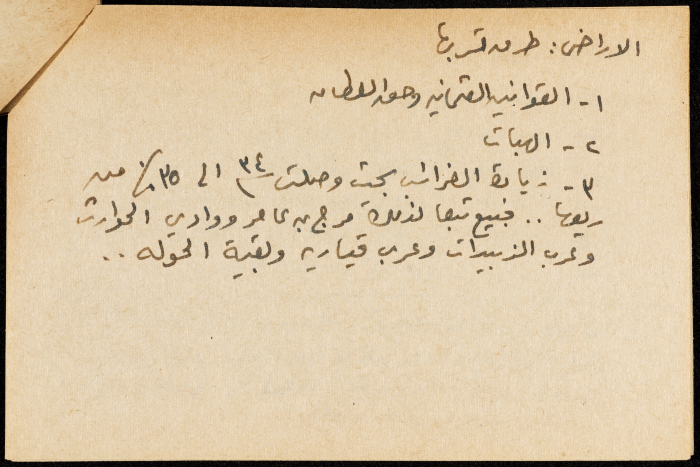 الاراضي: طرق تسربها
١- القوانين العثمانيه وحق السلطان
٢- الهبات
٣- زيادة الضرائب بحيث وصلت ٣٤ الى ٣٥٪ من
ريعها .. فبيع تبعا لذلك مرج بن عامر ووادي الحوارث
وعرب الزبيدات وعرب قيساريه وبقية الحوله ..